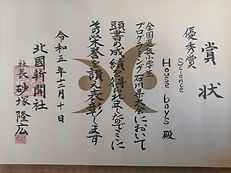 賞状
優秀賞
Science
House boys 殿
全国選抜小学生
プログラミング石川県大会において
頭書の成績を得られましたのでここに
その栄誉を讃え表彰します
令和五年十二月十日
北國新聞社
社長 砂塚隆広